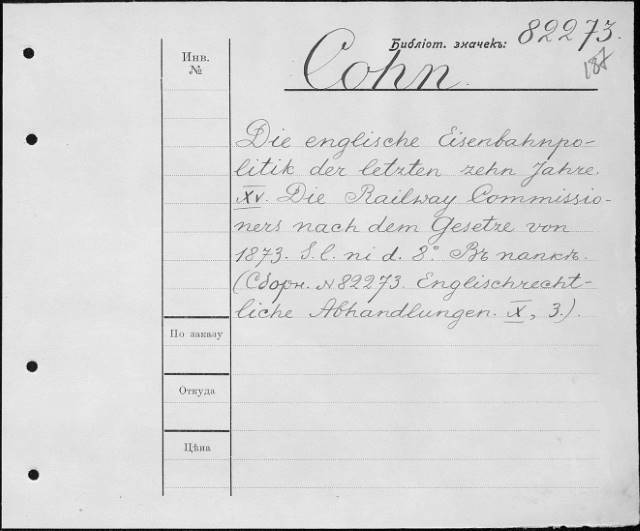 Библіот. значекъ: 82273.
187
Cohn.
Инв.
№
Die englische Eisenbahnpo-
litik der letzten zehn Jahre.
XV. Die Railway Commissio-
ners nach dem Gesetze von
1873. S. l. ni d. 8°. Въ папкѣ.
(Сборн. №82273. Englischrecht-
liche Abhandlungen. X, 3.).
По заказу
Откуда
Цѣна